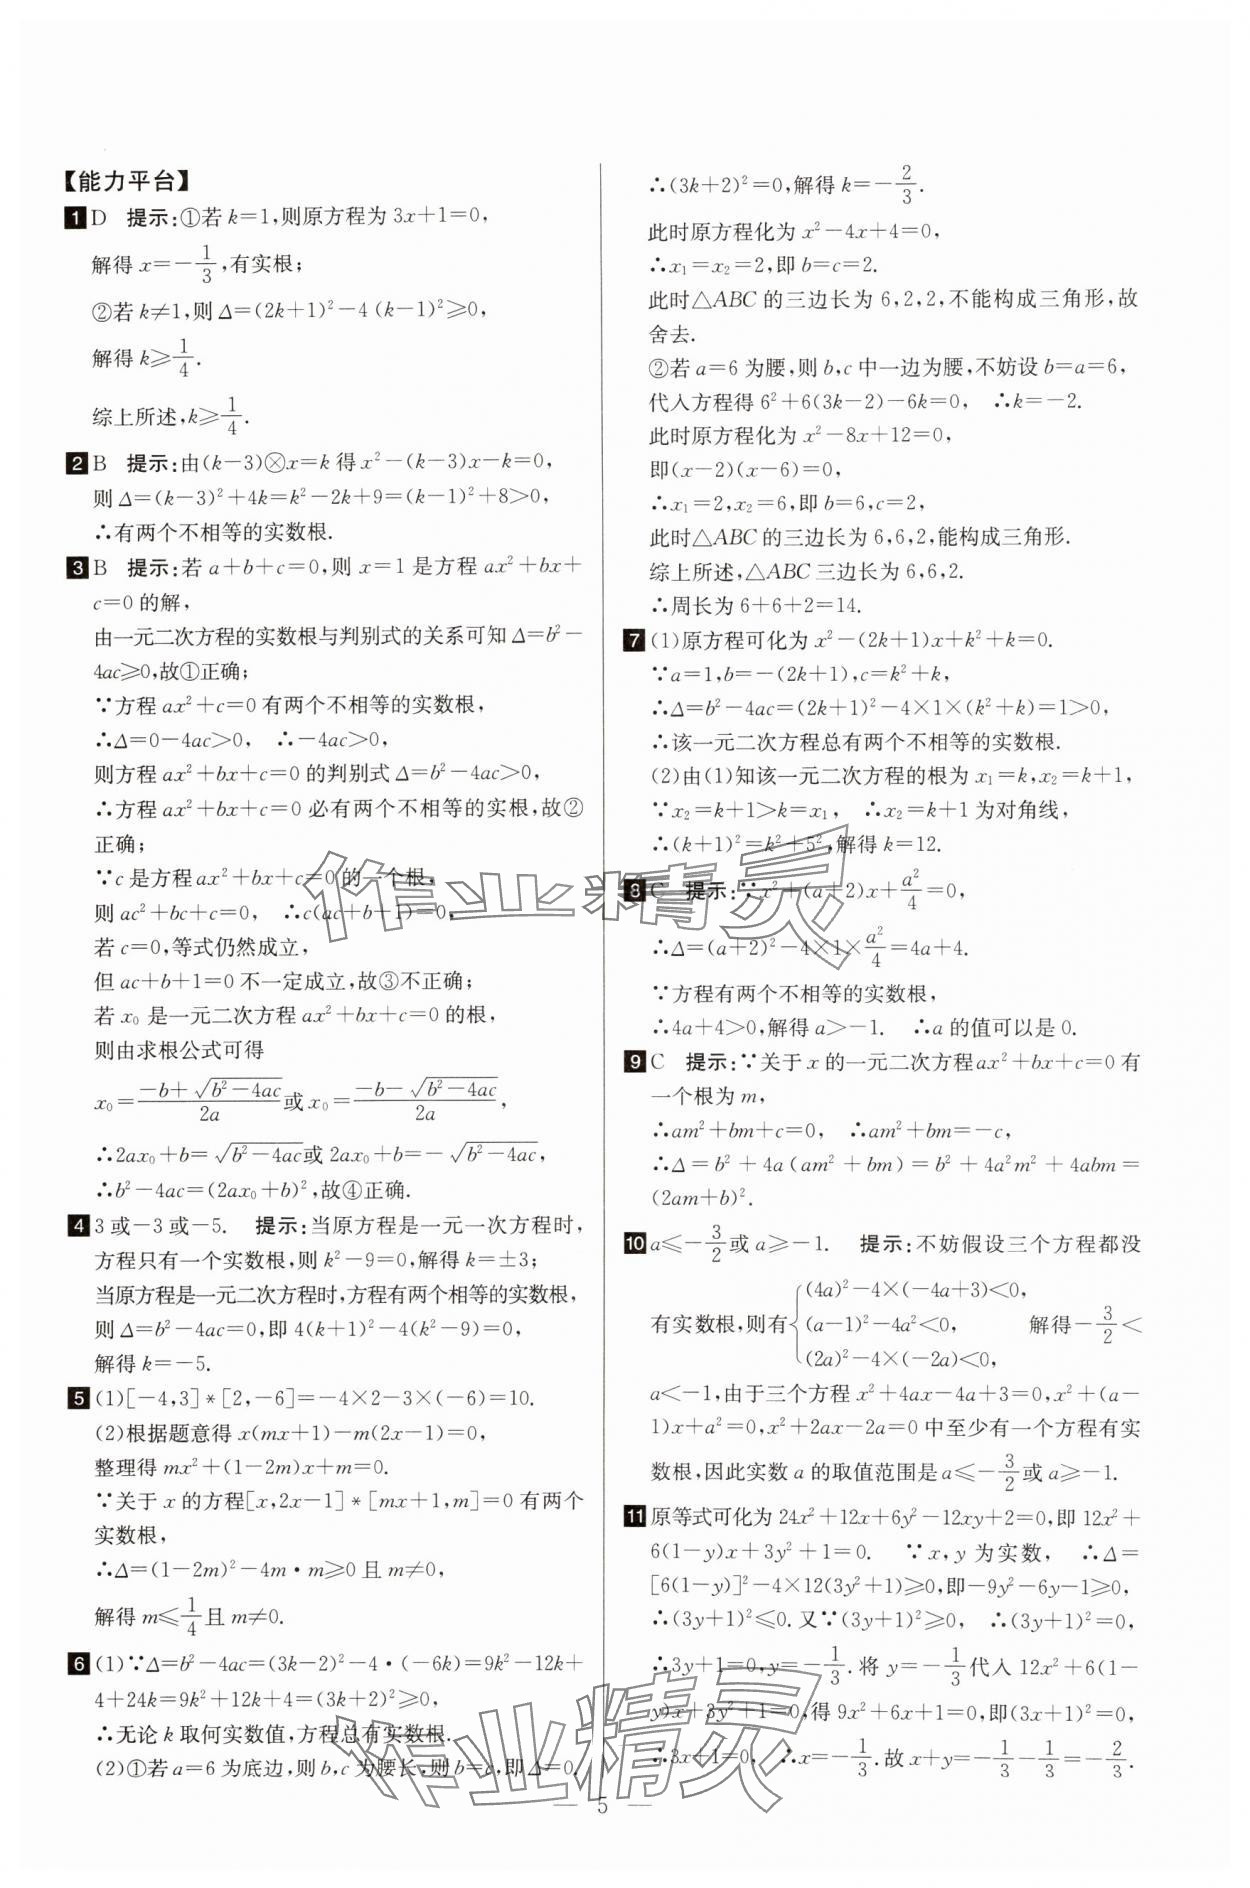 【能力平台】
1 D 提示:①若 k=1,则原方程为 3x+1=0,
解得 x=-1/3,有实根;
②若 k≠1,则 Δ=(2k+1)²-4(k-1)²≥0,
解得 k≥1/4.
综上所述,k≥1/4.
2 B 提示:由(k-3)⊗x=k 得 x²-(k-3)x-k=0,
则 Δ=(k-3)²+4k=k²-2k+9=(k-1)²+8>0,
∴有两个不相等的实数根.
3 B 提示:若 a+b+c=0,则 x=1 是方程 ax²+bx+
c=0 的解,
由一元二次方程的实数根与判别式的关系可知 Δ=b²-
4ac≥0,故①正确;
∵方程 ax²+c=0 有两个不相等的实数根,
∴Δ=0-4ac>0, ∴-4ac>0,
则方程 ax²+bx+c=0 的判别式 Δ=b²-4ac>0,
∴方程 ax²+bx+c=0 必有两个不相等的实根,故②
正确;
∵c 是方程 ax²+bx+c=0 的一个根,
则 ac²+bc+c=0, ∴c(ac+b+1)=0,
若 c=0,等式仍然成立,
但 ac+b+1=0 不一定成立,故③不正确;
若 x₀ 是一元二次方程 ax²+bx+c=0 的根,
则由求根公式可得
x₀=(-b+√(b²-4ac))/2a 或 x₀=(-b-√(b²-4ac))/2a,
∴2ax₀+b=√(b²-4ac)或 2ax₀+b=-√(b²-4ac),
∴b²-4ac=(2ax₀+b)²,故④正确.
4 3 或-3 或-5. 提示:当原方程是一元一次方程时,
方程只有一个实数根,则 k²-9=0,解得 k=±3;
当原方程是一元二次方程时,方程有两个相等的实数根,
则 Δ=b²-4ac=0,即 4(k+1)²-4(k²-9)=0,
解得 k=-5.
5 (1)[-4,3]*[2,-6]=-4×2-3×(-6)=10.
(2)根据题意得 x(mx+1)-m(2x-1)=0,
整理得 mx²+(1-2m)x+m=0.
∵关于 x 的方程[x,2x-1]*[mx+1,m]=0 有两个
实数根,
∴Δ=(1-2m)²-4m·m≥0 且 m≠0,
解得 m≤1/4 且 m≠0.
6 (1)∵Δ=b²-4ac=(3k-2)²-4·(-6k)=9k²-12k+
4+24k=9k²+12k+4=(3k+2)²≥0,
∴无论 k 取何实数值,方程总有实数根.
(2)①若 a=6 为底边,则 b,c 为腰长,则 b=c,即 Δ=0.
∴(3k+2)²=0,解得 k=-2/3.
此时原方程化为 x²-4x+4=0,
∴x₁=x₂=2,即 b=c=2.
此时△ABC 的三边长为 6,2,2,不能构成三角形,故
舍去.
②若 a=6 为腰,则 b,c 中一边为腰,不妨设 b=a=6,
代入方程得 6²+6(3k-2)-6k=0, ∴k=-2.
此时原方程化为 x²-8x+12=0,
即(x-2)(x-6)=0,
∴x₁=2,x₂=6,即 b=6,c=2,
此时△ABC 的三边长为 6,6,2,能构成三角形.
综上所述,△ABC 三边长为 6,6,2.
∴周长为 6+6+2=14.
7 (1)原方程可化为 x²-(2k+1)x+k²+k=0.
∵a=1,b=-(2k+1),c=k²+k,
∴Δ=b²-4ac=(2k+1)²-4×1×(k²+k)=1>0,
∴该一元二次方程总有两个不相等的实数根.
(2)由(1)知该一元二次方程的根为 x₁=k,x₂=k+1,
∵x₂=k+1>k=x₁, ∴x₂=k+1 为对角线,
∴(k+1)²=k²+5²,解得 k=12.
8 C 提示:∵x²+(a+2)x+a²/4=0,
∴Δ=(a+2)²-4×1×a²/4=4a+4.
∵方程有两个不相等的实数根,
∴4a+4>0,解得 a>-1. ∴a 的值可以是 0.
9 C 提示:∵关于 x 的一元二次方程 ax²+bx+c=0 有
一个根为 m,
∴am²+bm+c=0, ∴am²+bm=-c,
∴Δ=b²+4a(am²+bm)=b²+4a²m²+4abm=
(2am+b)².
10 a≤-3/2 或 a≥-1. 提示:不妨假设三个方程都没
有实数根,则有{(4a)²-4×(-4a+3)<0,
(a-1)²-4a²<0, 解得-3/2<
(2a)²-4×(-2a)<0,
a<-1,由于三个方程 x²+4ax-4a+3=0,x²+(a-
1)x+a²=0,x²+2ax-2a=0 中至少有一个方程有实
数根,因此实数 a 的取值范围是 a≤-3/2 或 a≥-1.
11 原等式可化为 24x²+12x+6y²-12xy+2=0,即 12x²+
6(1-y)x+3y²+1=0. ∵x,y 为实数, ∴Δ=
[6(1-y)]²-4×12(3y²+1)≥0,即-9y²-6y-1≥0,
∴(3y+1)²≤0.又∵(3y+1)²≥0, ∴(3y+1)²=0,
∴3y+1=0,y=-1/3.将 y=-1/3 代入 12x²+6(1-
y)x+3y²+1=0,得 9x²+6x+1=0,即(3x+1)²=0,
∴3x+1=0, ∴x=-1/3.故 x+y=-1/3-1/3=-2/3.
作业精灵
作业精灵
— 5 —